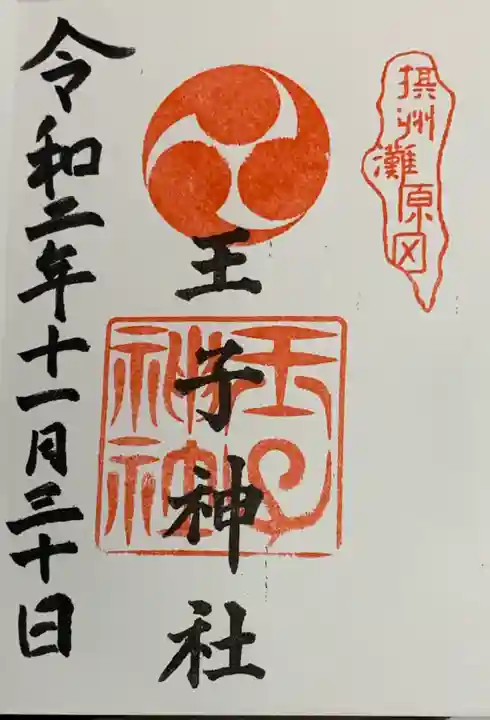 摂州
灘
原田
王子神社
王子神社
令和二年十一月三十日